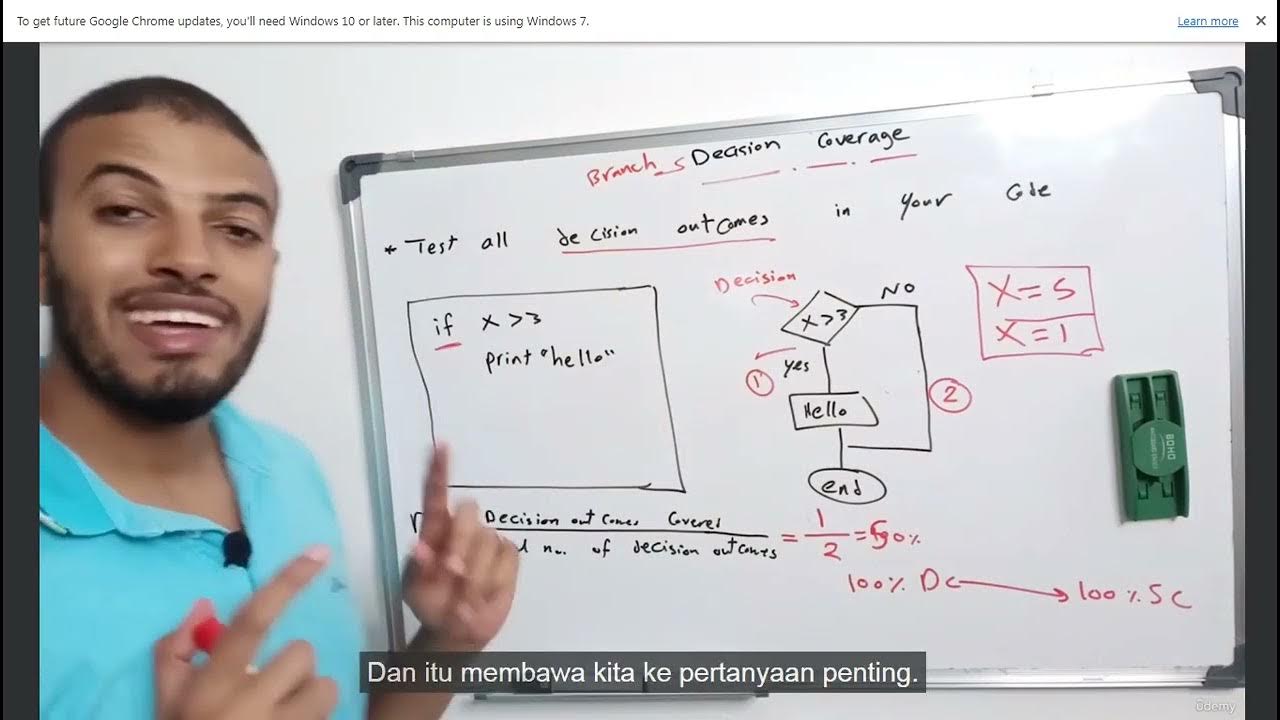 To get future Google Chrome updates, you'll need Windows 10 or later. This computer is using Windows 7.
Learn more
Branch Decision Coverage
* Test all decision outcomes in your Code
if x >3
print "hello"
Decision
x >3
NO
yes
1
Hello
2
end
X=5
X=1
BOHO
Decision outcomes Covered
no. of decision outcomes
= 1/2 = 50%
100% DC → 100% SC
Dan itu membawa kita ke pertanyaan penting.
ûdemy